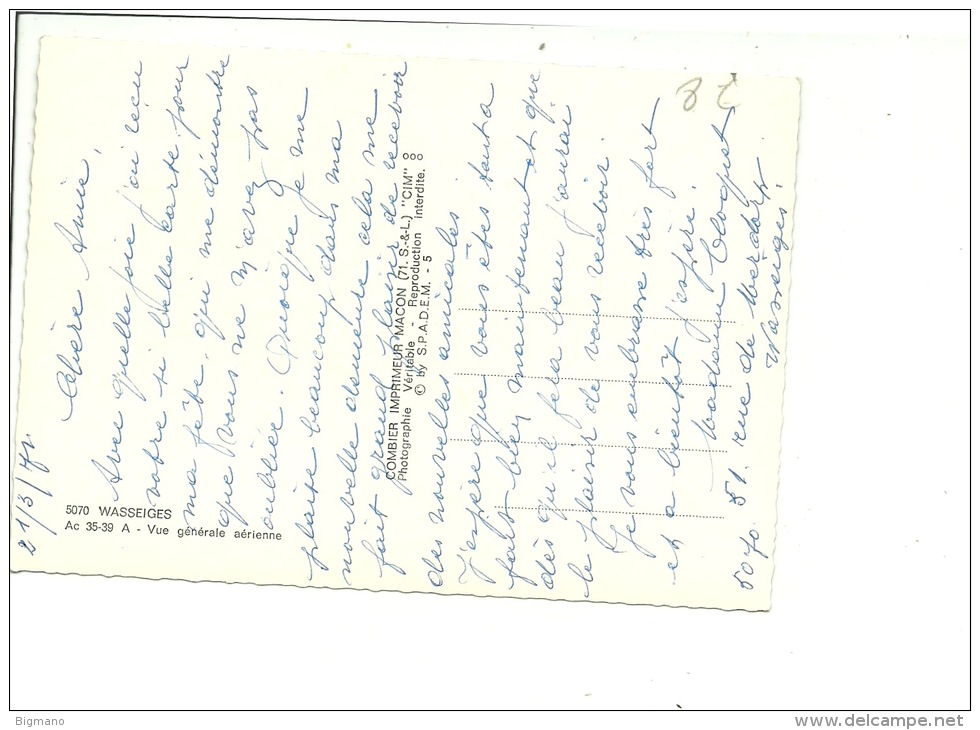 21/3/71.
Chère Amie,
Avec quelle joie j'ai reçu
votre si belle carte pour
ma fête. qui me démontre
que vous ne m'avez pas
oubliée. Quoique je me
plaise beaucoup dans ma
nouvelle demeure cela me
fait grand plaisir de recevoir
des nouvelles amicales
J'espère que vous êtes tout a
fait bien maintenant et que
dès qu'il fera beau j'aurai
le plaisir de vous recevoir.
Je vous embrasse très fort
et a bientôt j'espère.
Madame
51. rue de
5070 Wasseiges.
5070 WASSEIGES
Ac 35-39 A - Vue générale aérienne
COMBIER IMPRIMEUR MACON (71. S.-&-L.) "CIM"
Photographie Véritable - Reproduction interdite.
© by S.P.A.D.E.M. - 5
Bigmano
www.delcampe.net